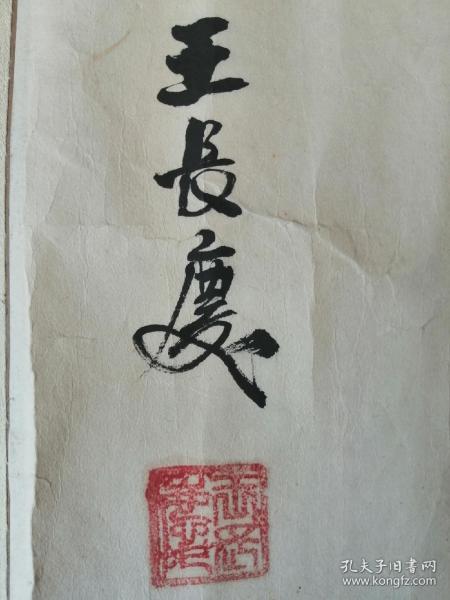 王長慶
孔夫子旧书网
www.kongfz.com